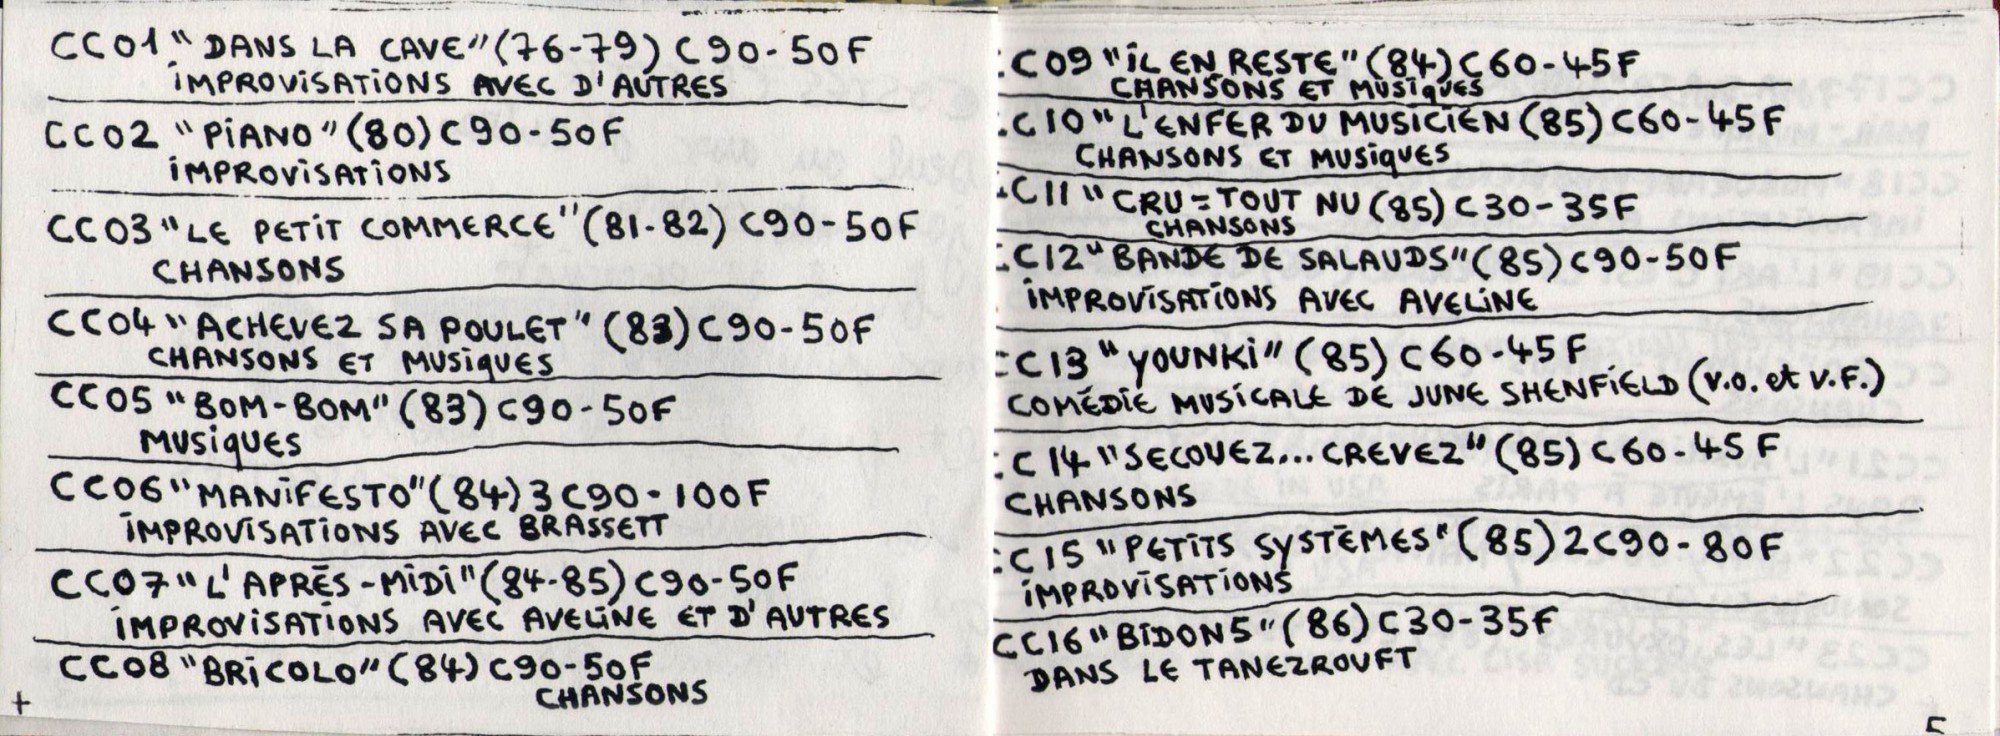 CC01 "DANS LA CAVE" (76-79) C90-50F
IMPROVISATIONS AVEC D'AUTRES
CC02 "PIANO" (80) C90-50F
IMPROVISATIONS
CC03 "LE PETIT COMMERCE" (81-82) C90-50F
CHANSONS
CC04 "ACHEVEZ SA POULET" (83) C90-50F
CHANSONS ET MUSIQUES
CC05 "BOM-BOM" (83) C90-50F
MUSIQUES
CC06 "MANIFESTO" (84) 3 C90-100F
IMPROVISATIONS AVEC BRASSETT
CC07 "L'APRÈS-MIDI" (84-85) C90-50F
IMPROVISATIONS AVEC AVELINE ET D'AUTRES
CC08 "BRICOLO" (84) C90-50F
CHANSONS
+
CC09 "IL EN RESTE" (84) C60-45F
CHANSONS ET MUSIQUES
CC10 "L'ENFER DU MUSICIEN (85) C60-45F
CHANSONS ET MUSIQUES
CC11 "CRU = TOUT NU (85) C30-35F
CHANSONS
CC12 "BANDE DE SALAUDS" (85) C90-50F
IMPROVISATIONS AVEC AVELINE
CC13 "YOUNKI" (85) C60-45F
COMÉDIE MUSICALE DE JUNE SHENFIELD (V.O. et V.F.)
CC14 "SECOUEZ... CREVEZ" (85) C60-45F
CHANSONS
CC15 "PETITS SYSTÈMES" (85) 2C90-80F
IMPROVISATIONS
CC16 "BIDON5" (86) C30-35F
DANS LE TANEZROUFT